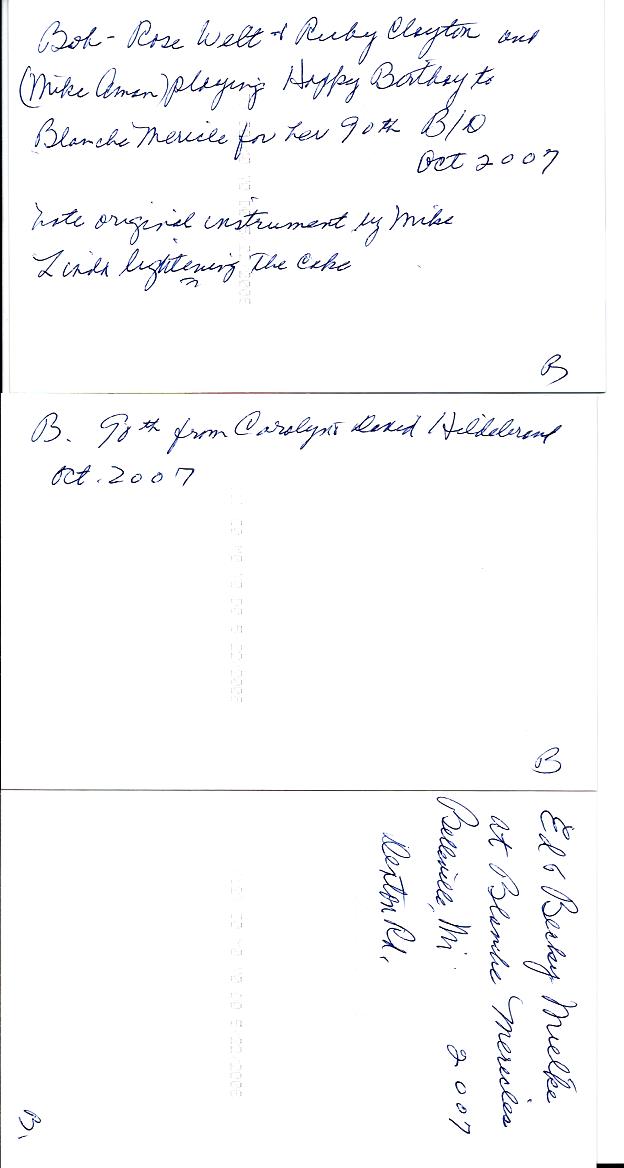 Bob - Rose Welt & Ruby Clayton and
(Mike Aman) playing Happy Birthay to
Blanche Mericle for her 90th B/D
Oct 2007
note original instrument by Mike
Linda lightening The Cake
B
B. 90th from Carolyn & David Hildebrand
Oct. 2007
B
Ed & Becky Mielke
at Blanche Mericles
Belleville, Mi. 2007
Denton Rd.
B.